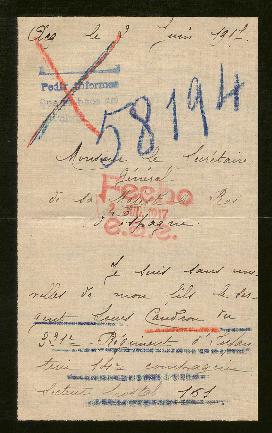 le 2 Juin 1917
Pedir informes
58194
Monsieur le Secrétaire
Général
de sa Majesté le Roi
d'Espagne
Fecho
1917
Je suis sans nou
velles de mon fils le Ser
gent Louis Caudron du
331e Régiment d'Infan
terie 14e compagnie
Secteur postal 161